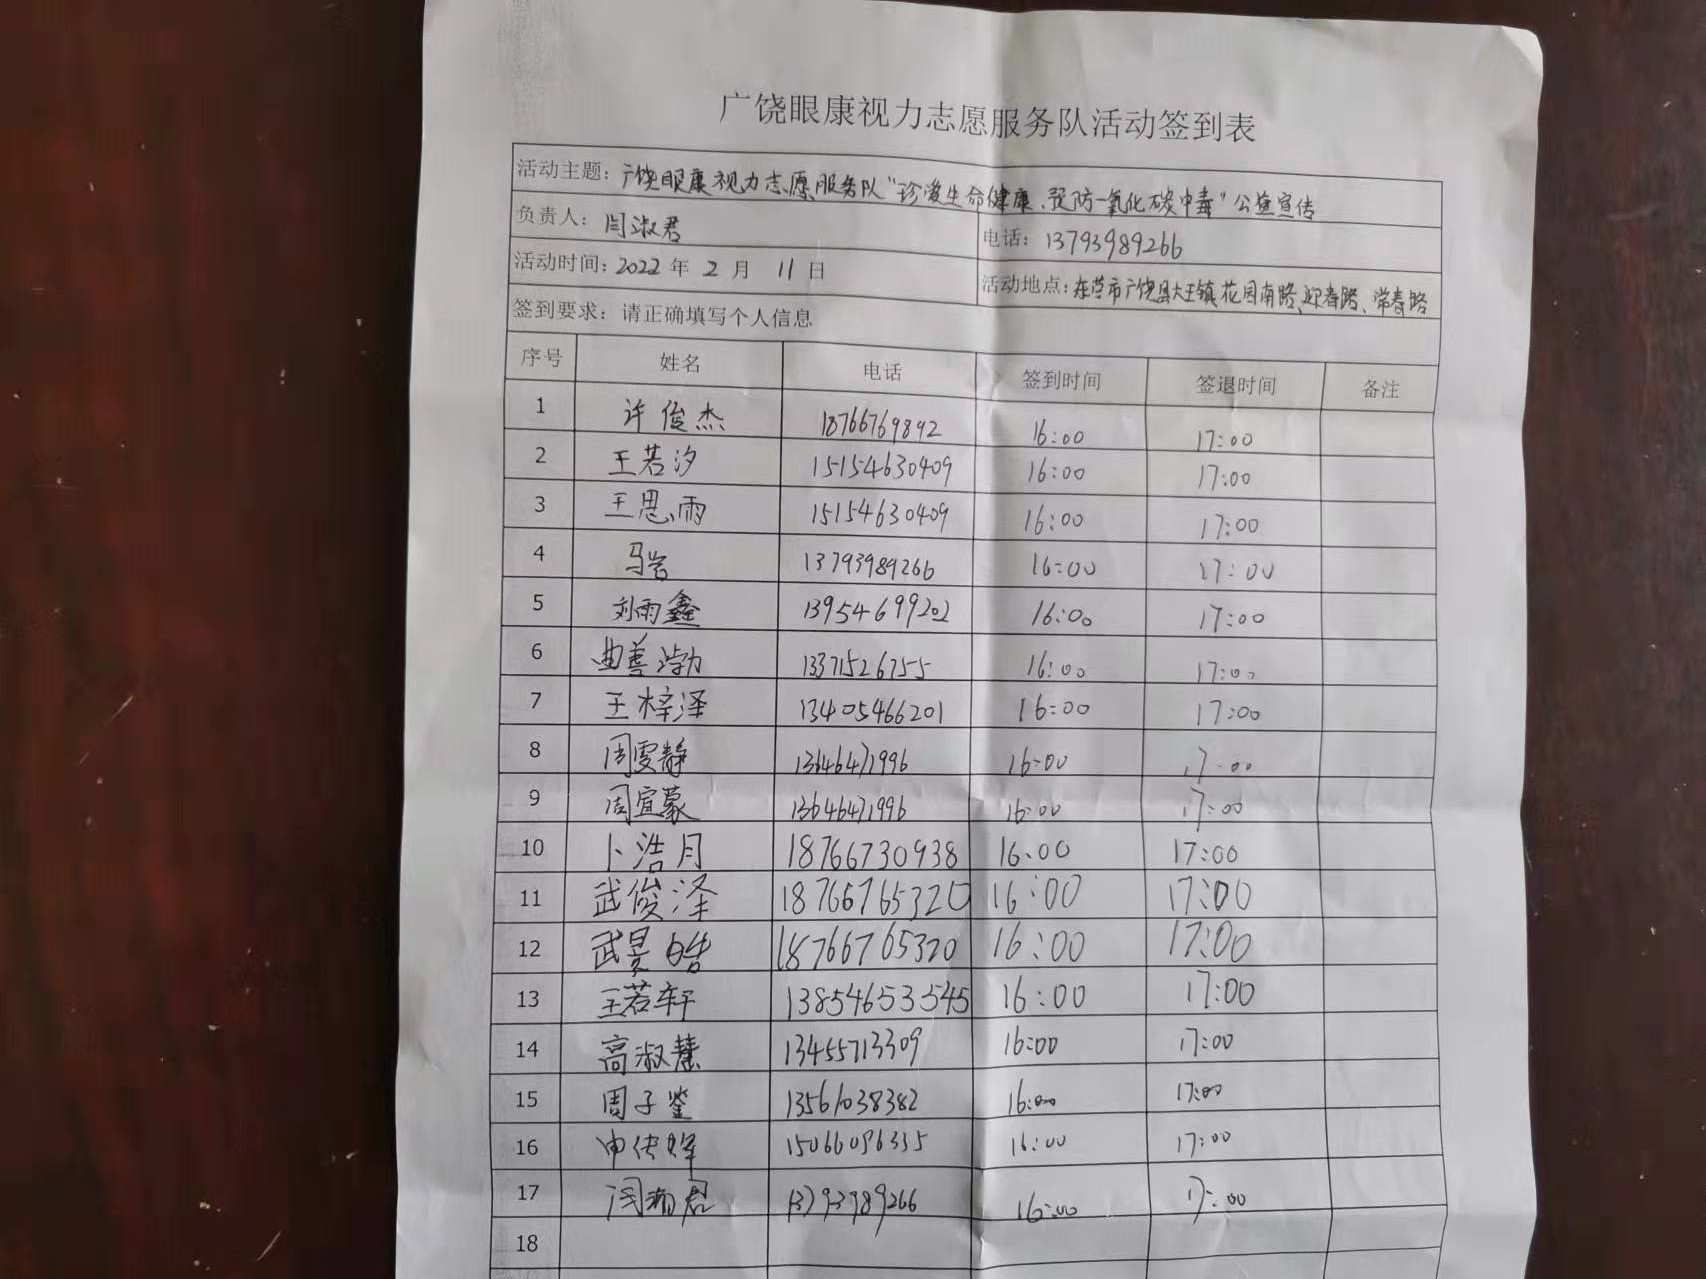 广饶眼康视力志愿服务队活动签到表
活动主题：广饶眼康视力志愿服务队"珍爱生命健康、预防一氧化碳中毒"公益宣传
负责人：闫淑君 电话：13793989266
活动时间：2022年2月11日 活动地点：东营市广饶县大王镇花园南路、迎春路、常春路
签到要求：请正确填写个人信息
序号 姓名 电话 签到时间 签退时间 备注
1 许俊杰 18766769892 16:00 17:00
2 王若汐 15154630409 16:00 17:00
3 王思雨 15154630409 16:00 17:00
4 马岩 13793989266 16:00 17:00
5 刘雨鑫 13954699202 16:00 17:00
6 曲善渤 13371526755 16:00 17:00
7 王梓泽 13405466201 16:00 17:00
8 周雯静 13646471996 16:00 17:00
9 周宜蒙 13646471996 16:00 17:00
10 卜浩月 18766730938 16:00 17:00
11 武俊泽 18766765320 16:00 17:00
12 武昊皓 18766765320 16:00 17:00
13 王若轩 13854653545 16:00 17:00
14 高淑慧 13455713309 16:00 17:00
15 周子鉴 13561038382 16:00 17:00
16 申传辉 15066096335 16:00 17:00
17 闫淑君 13793989266 16:00 17:00
18